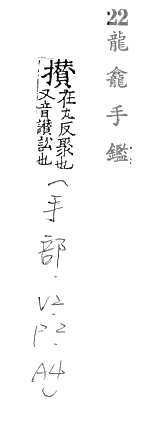 22
龍龕手鑑
攢在丸反聚也
又音讃訟也
(手部.
V2.
P2.
A4)